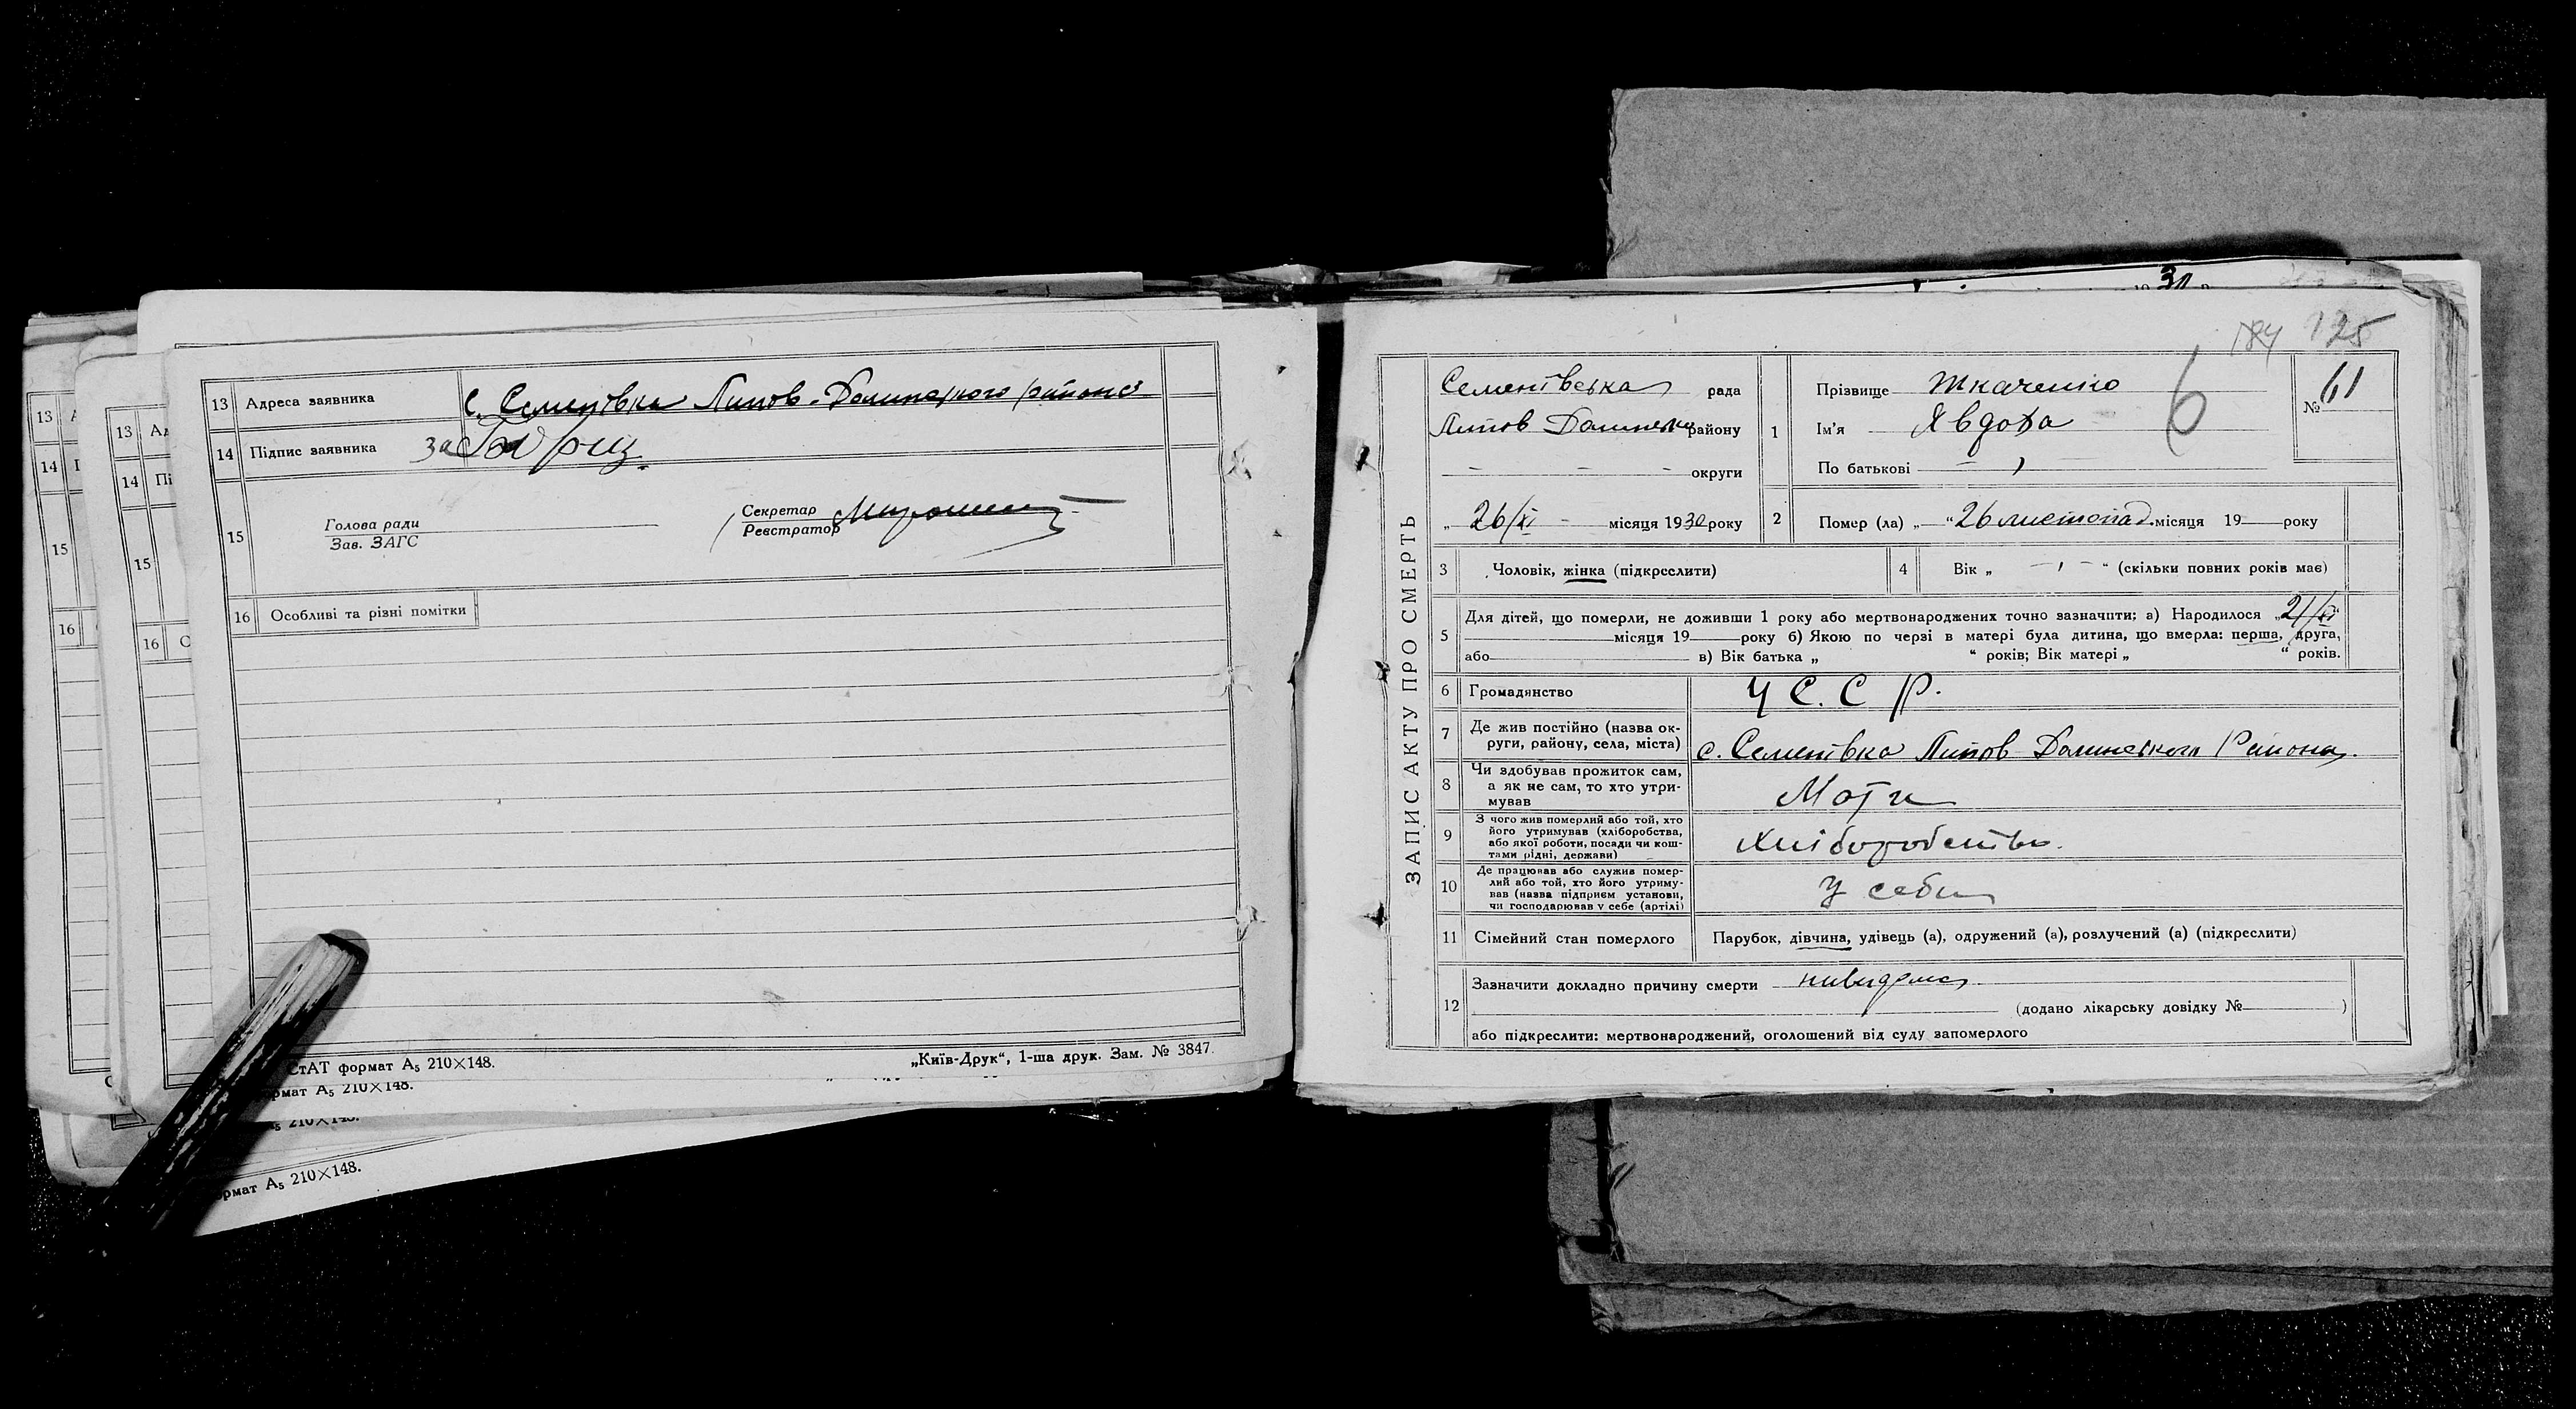 13 Адреса заявника с. Семенівка Липов-Долинського района
14 Підпис заявника за
15 Голова ради
Зав. ЗАГС
Секретар
Реєстратор
16 Особливі та різні помітки
СтАТ формат А₅ 210×148.
„Київ-Друк“, 1-ша друк. Зам. № 3847.
рмат А₅ 210×148.
рмат А₅ 210×148.
13
14
15
16
13
14 Пі
15
16
30
184 125
6
ЗАПИС АКТУ ПРО СМЕРТЬ
Семенівська рада
Липов Долинськ району
округи
„ 26/XI місяця 1930 року
1 Прізвище Ткаченко
Ім'я Явдоха
По батькові
№ 61
2 Помер (ла) „ “ 26 листопад місяця 19 року
3 Чоловік, жінка (підкреслити)
4 Вік „ “ (скільки повних років має)
5 Для дітей, що померли, не доживши 1 року або мертвонароджених точно зазначити; а) Народилося „21/XI
місяця 19 року б) Якою по черзі в матері була дитина, що вмерла: перша, друга,
або в) Вік батька „ “ років; Вік матері „ “ років.
6 Громадянство У С. С Р.
7 Де жив постійно (назва ок-
руги, району, села, міста) с. Семенівка Липов-Долинського Района
8 Чи здобував прожиток сам,
а як не сам, то хто утри-
мував Мати
9 З чого жив померлий або той, хто
його утримував (хліборобства,
або якої роботи, посади чи кош-
тами рідні, держави) Хліборобство.
10 Де працював або служив помер-
лий або той, хто його утриму-
вав (назва підприєм установи,
чи господарював у себе (артілі) У себи
11 Сімейний стан померлого Парубок, дівчина, удівець (а), одружений (а), розлучений (а) (підкреслити)
12 Зазначити докладно причину смерти нивидома
(додано лікарську довідку № )
або підкреслити: мертвонароджений, оголошений від суду запомерлого